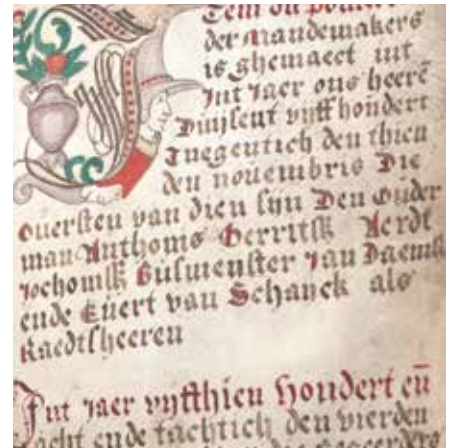 Item die
der Mandemakers
is ghemaect int
Jnt Jaer ons heerē
Duijsent vijff hondert
Tnegentich den thien
den nouembris Die
ouersten van dien sijn Den Ouder
man Anthonis Gerritsz Aerdt
Jochomsz Busmeijster Jan Daemsz
ende Euert van Schayck als
Raedtsheeren
Jnt Jaer vijfthien Hondert eñ
tacht ende tachtich den vierden